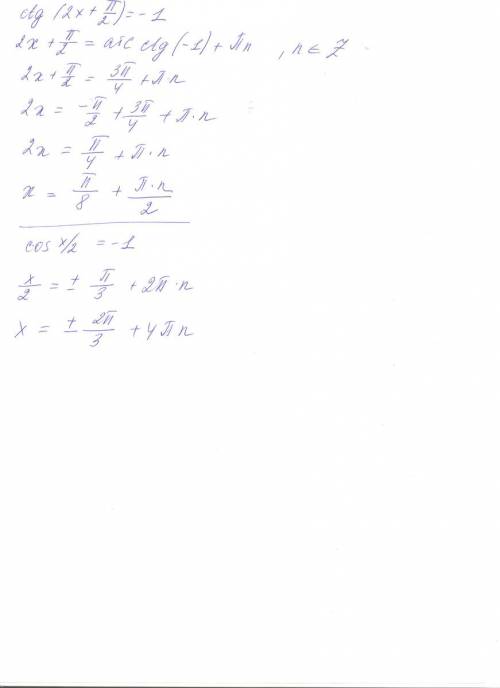 ctg (2x + π/2) = -1
2x + π/2 = arc ctg (-1) + πn , n ∈ Z
2x + π/2 = 3π/4 + πn
2x = -π/2 + 3π/4 + π·n
2x = π/4 + π·n
x = π/8 + π·n/2
cos x/2 = -1
x/2 = ± π/3 + 2π·n
x = ± 2π/3 + 4πn